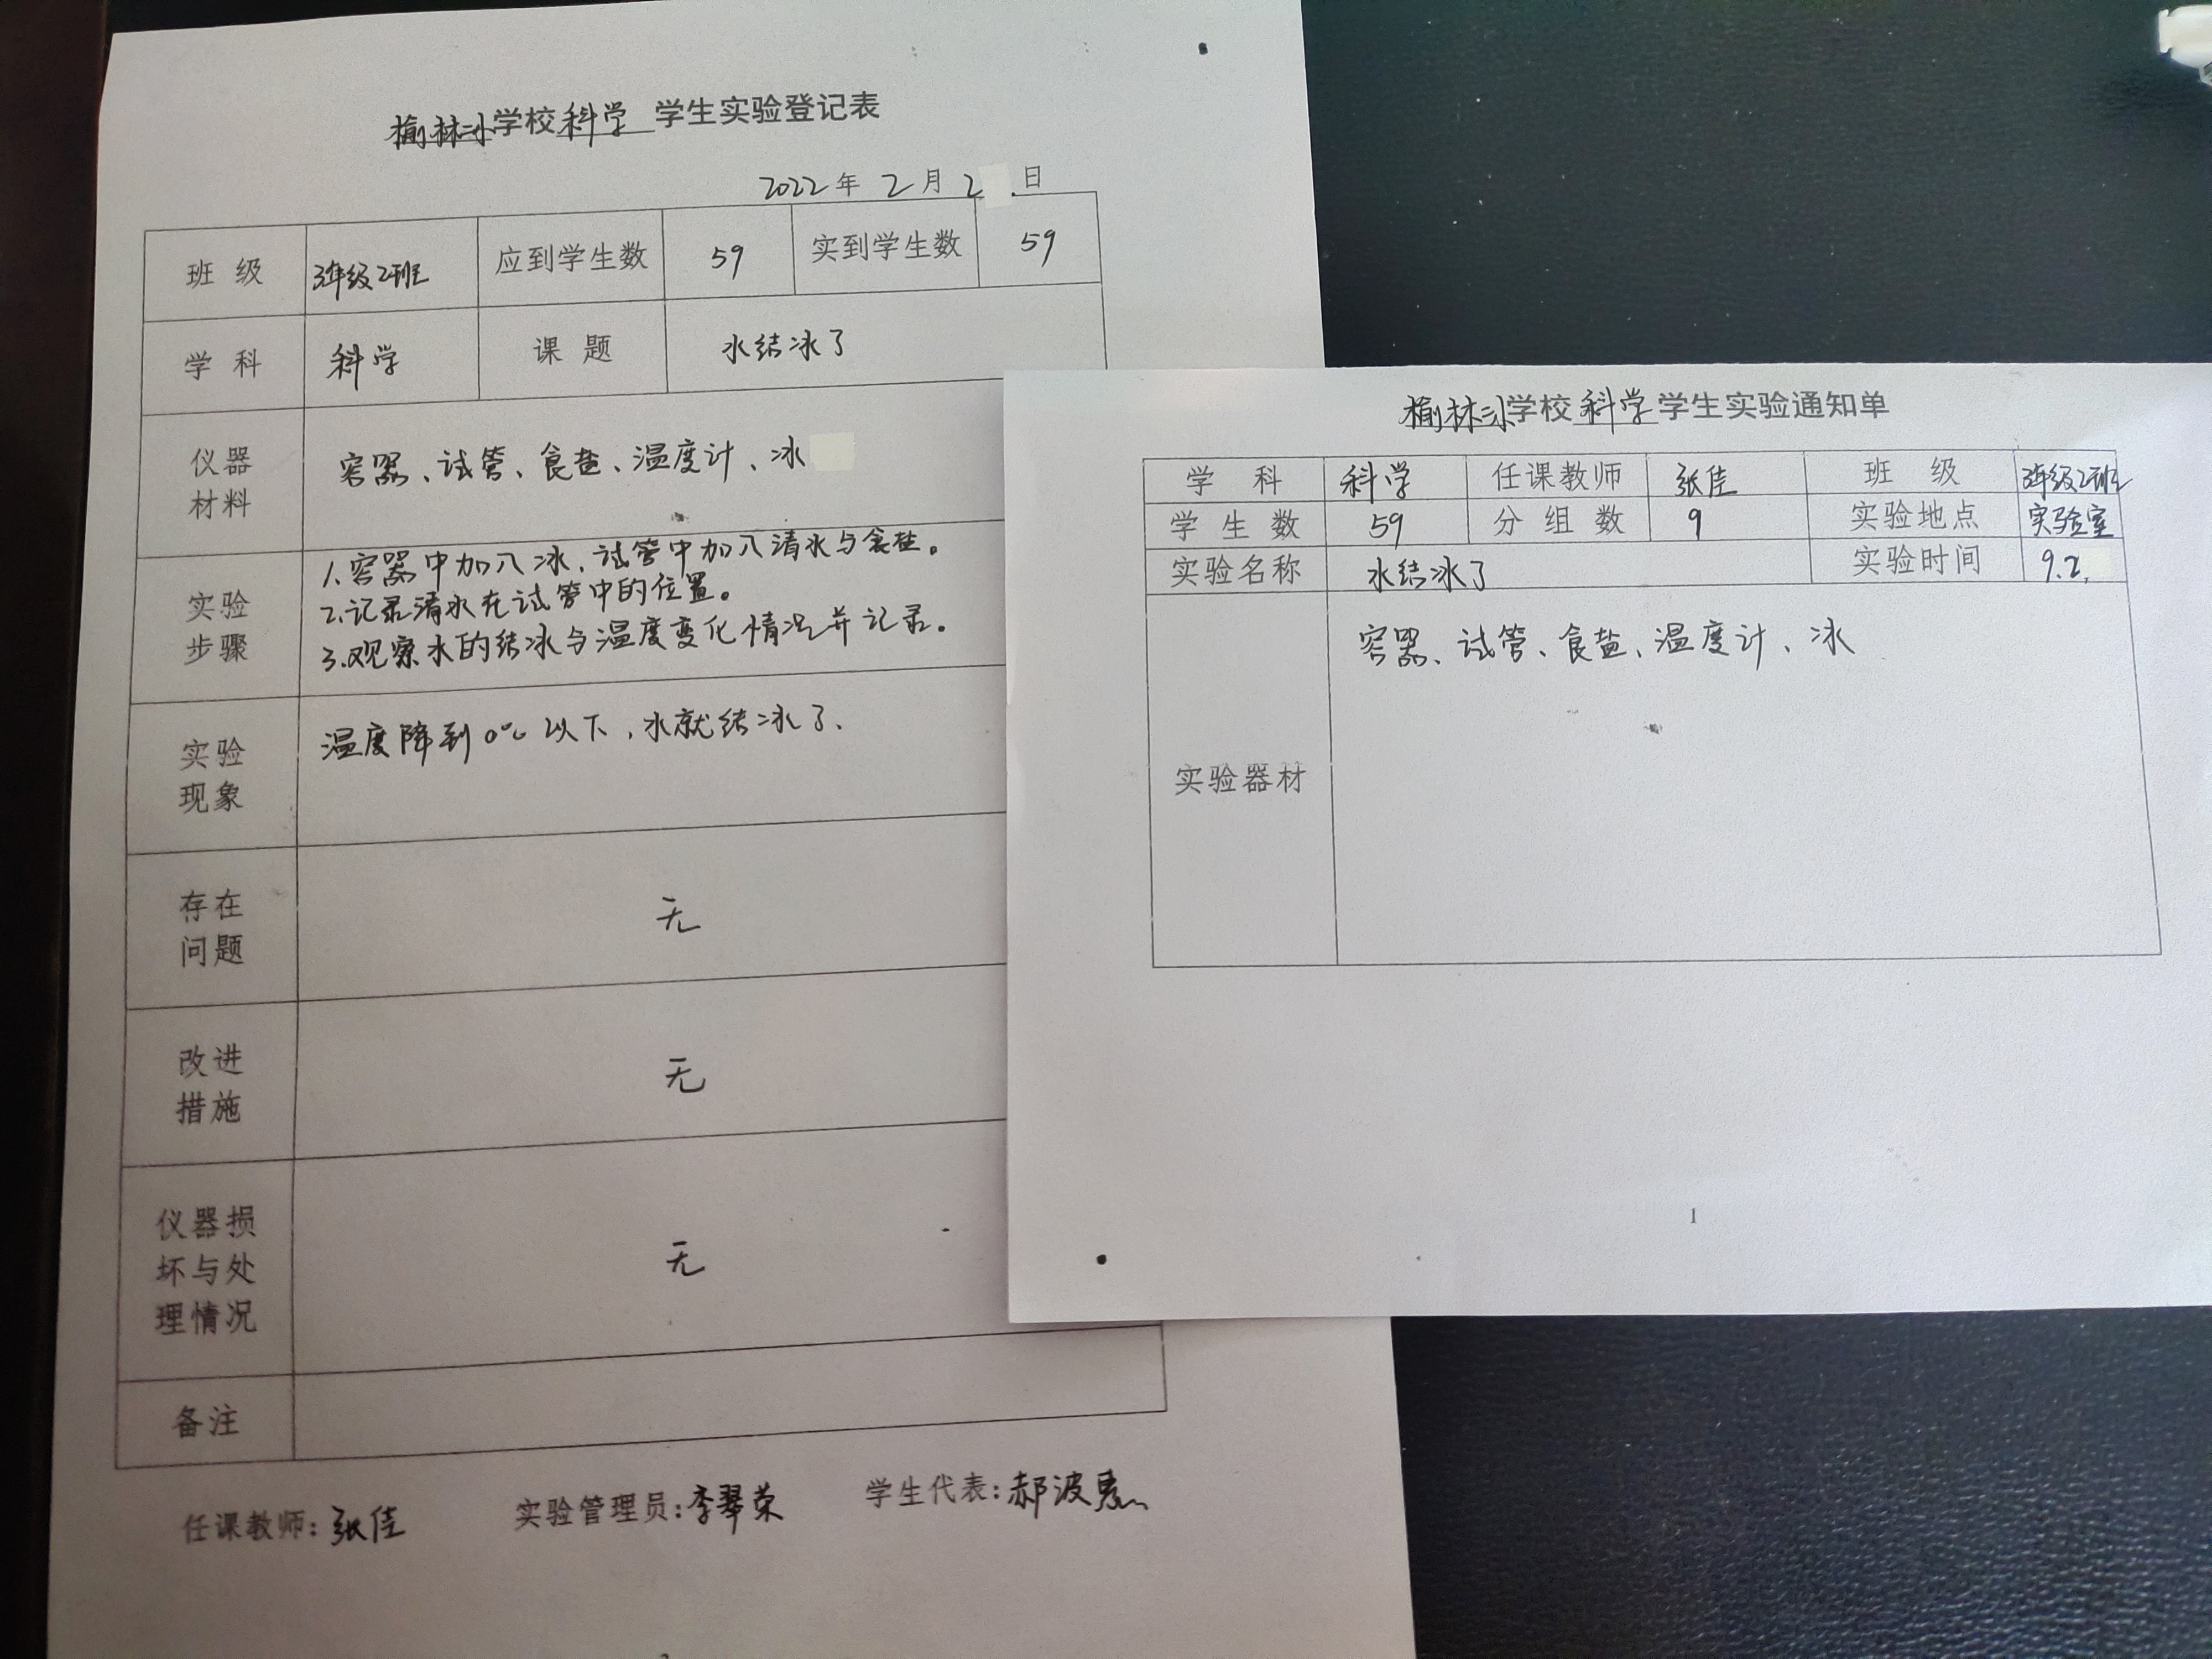 榆林三小学校科学 学生实验登记表
2022年 2月 2 .日
班 级 3年级2班 应到学生数 59 实到学生数 59
学 科 科学 课 题 水结冰了
仪器材料 容器、试管、食盐、温度计、冰
实验步骤 1.容器中加入冰,试管中加入清水与食盐。
2.记录清水在试管中的位置。
3.观察水的结冰与温度变化情况并记录。
实验现象 温度降到0℃以下,水就结冰了.
存在问题 无
改进措施 无
仪器损坏与处理情况 无
备注
任课教师:张佳 实验管理员:李翠荣 学生代表:郝波
榆林三小学校科学学生实验通知单
学 科 科学 任课教师 张佳 班 级 3年级2班
学 生 数 59 分 组 数 9 实验地点 实验室
实验名称 水结冰了 实验时间 9.2.
实验器材 容器、试管、食盐、温度计、冰
1